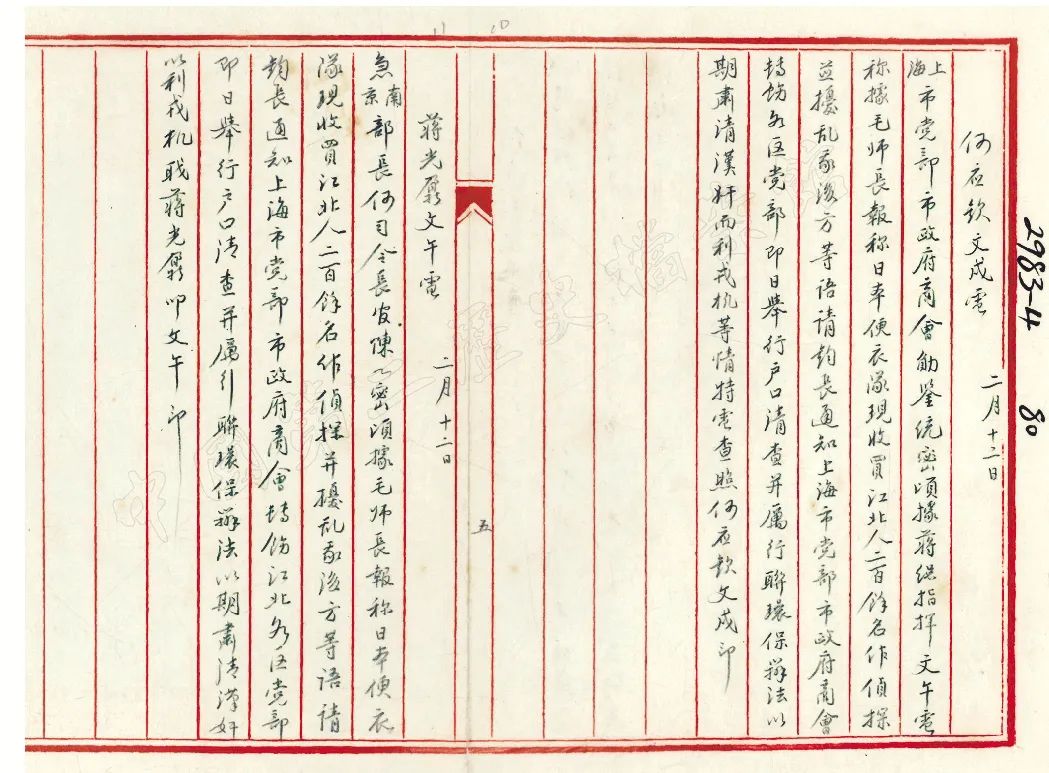 2983-4 80
何应钦文戌电 二月十二日
上海市党部市政府商會勛鉴统密頃據蒋総指挥文午電
称據毛师長報称日本便衣隊現收買江北人二百餘名作偵探
并擾乱我後方等语请鈞長通知上海市党部市政府商會
转饬各区党部即日举行户口清查并厲行聯環保辦法以
期肃清漢奸而利戎机等情特電查照何应欽文戌印
蒋光鼐文午電 二月十二日
急南京部長何司令長官陳密頃據毛师長報称日本便衣
隊現收買江北人二百餘名作偵探并擾乱我後方等语请
鈞長通知上海市党部市政府商會转饬江北各区党部
即日举行户口清查并属引聯環保辦法以期肃清漢奸
以利戎机职蒋光鼐叩文午印
五
中國第二歷史檔案館